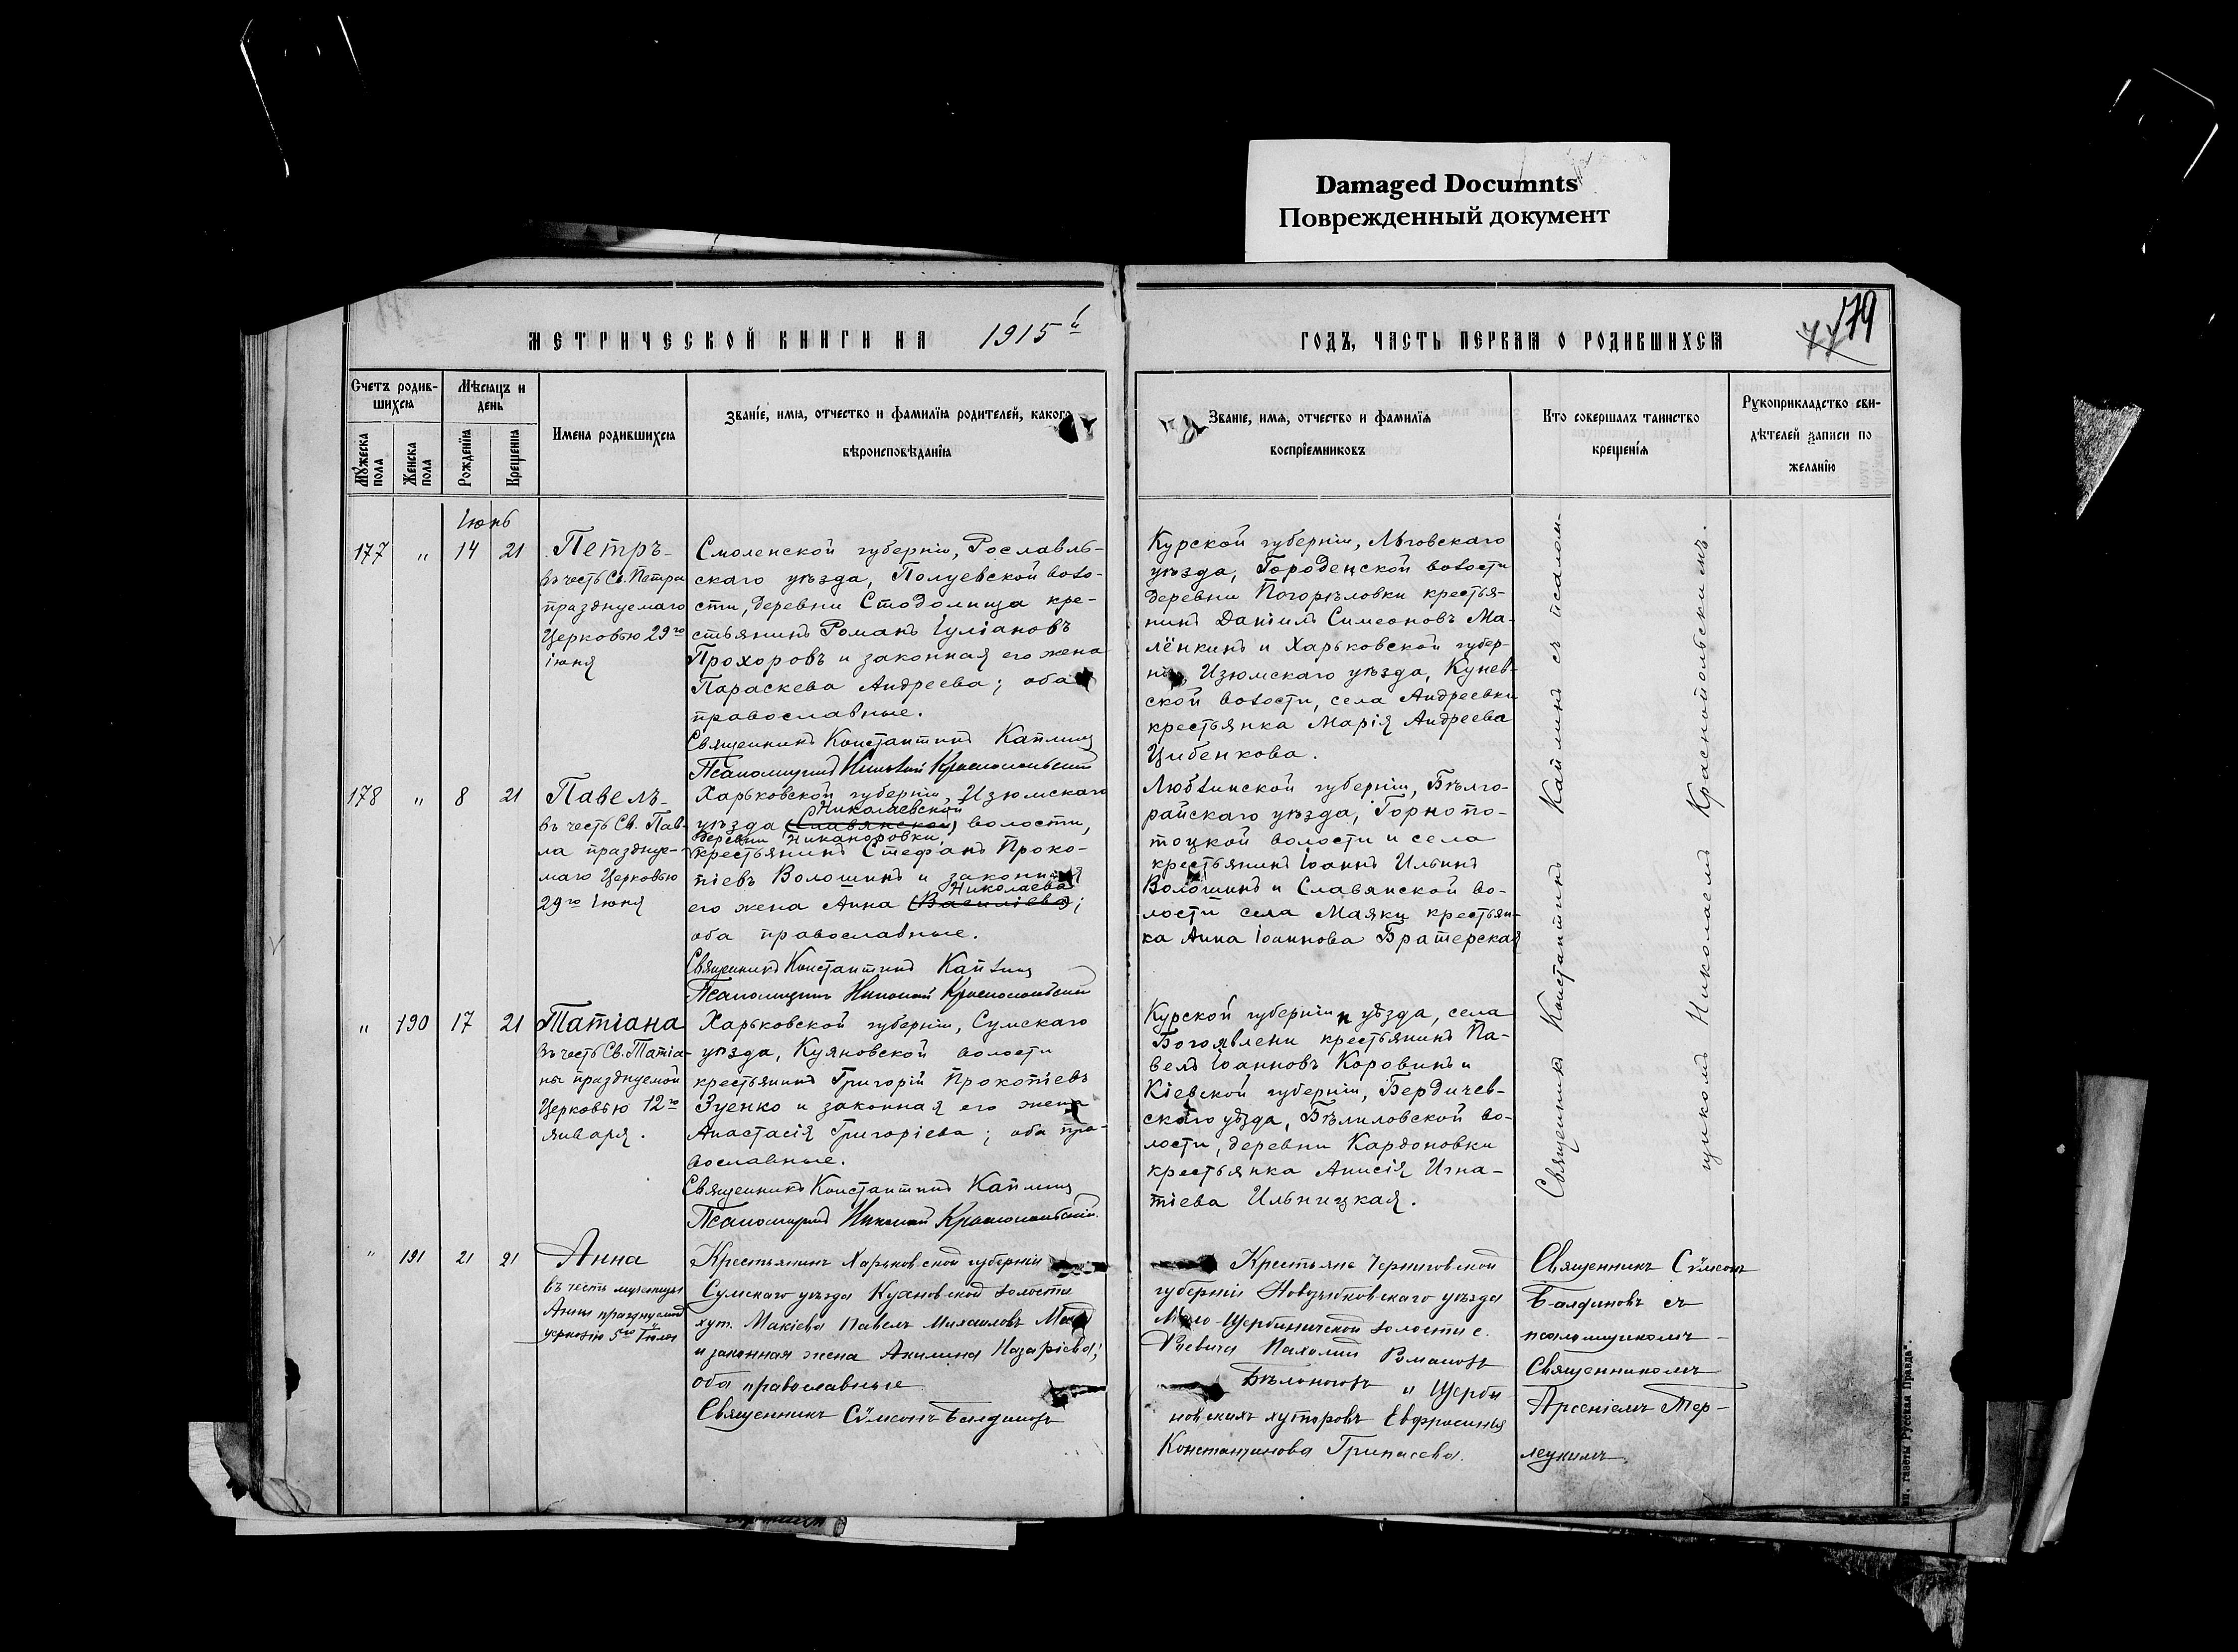 Damaged Documnts
Поврежденный документ
МЕТРИЧЕСКОЙ КНИГИ НА 1915й
ГОДЪ, ЧАСТЬ ПЕРВАЯ О РОДИВШИХСЯ
77 79
Счетъ родив-
шихся
Мѣсяцъ и
день
Мужеска пола
Женска пола
Рожденія
Крещенія
Имена родившихся
Званіе, имя, отчество и фамилія родителей, какого
вѣроисповѣданія
Званіе, имя, отчество и фамилія
воспріемниковъ
Кто совершалъ таинство
крещенія
Рукоприкладство сви-
дѣтелей записи по
желанію
Іюнь
177 " 14 21
Петръ
въ честь Св. Петра
празднуемаго
Церковью 29го
іюня
Смоленской губерніи, Рославль-
скаго уѣзда, Полуевской воло-
сти, деревни Стодолища кре-
стьянинъ Романъ Іуліановъ
Прохоровъ и законная его жена
Параскева Андреева; оба
православные.
Священникъ Константинъ Каплинъ
Псаломщикъ Николай Краснопольскій
Курской губерніи, Льговскаго
уѣзда, Городенской волости
деревни Погорѣловки крестья-
нинъ Даніилъ Симеоновъ Ма-
лёнкинъ и Харьковской губер-
ніи, Изюмскаго уѣзда, Кунев-
ской волости, села Андреевки
крестьянка Марія Андреева
Цибенкова.
178 " 8 21
Павелъ
въ честь Св. Пав-
ла праздnue-
маго Церковью
29го Іюня
Харьковской губерніи, Изюмскаго
Николаевской
уѣзда (Славянской) волости,
деревни Никаноровки,
крестьянинъ Стефанъ Проко-
піевъ Волошинъ и законная
Николаева
его жена Анна (Василіева);
оба православные.
Священникъ Константинъ Каплинъ
Псаломщикъ Николай Краснопольскій
Люблинской губерніи, Бѣлго-
райскаго уѣзда, Горнопо-
тоцкой волости и села
крестьянинъ Іоаннъ Ильинъ
Волошинъ и Славянской во-
лости села Маяки крестьян-
ка Анна Іоаннова Братерская
" 190 17 21
Татіана
въ честь Св. Татіа-
ны празднуемой
Церковью 12го
января.
Харьковской губерніи, Сумскаго
уѣзда, Куяновской волости
крестьянинъ Григорій Прокопіевъ
Зуенко и законная его жена
Анастасія Григоріева; оба пра-
вославные.
Священникъ Константинъ Каплинъ
Псаломщикъ Николай Краснопольскій.
Курской губерніи и уѣзда, села
Богоявлени крестьянинъ Па-
велъ Іоанновъ Коровинъ и
Кіевской губерніи, Бердичев-
скаго уѣзда, Бѣлиловской во-
лости, деревни Кардоновки
крестьянка Анисія Игна-
тіева Ильницкая.
Священникъ Константинъ Каплинъ съ псалом-
щикомъ Николаемъ Краснопольскимъ.
" 191 21 21
Анна
въ честь мученицы
Анны празднуемой
церковію 5го Іюля
Крестьянинъ Харьковской губерніи
Сумскаго уѣзда Куяновской волости
хут. Макіева Павелъ Михаиловъ
и законная жена Акилина Назаріева;
оба православные
Священникъ Сѵмеонъ Балдиновъ
Крестьяне Черниговской
губерніи Новозыбковскаго уѣзда
Мало-Щербиничской волости с.
Пахомій Романовъ
Бѣлоноговъ и Щерби
новскихъ хуторовъ Евфросинія
Константинова
Священникъ Сѵмеонъ
Балдиновъ съ
псаломщикомъ
Священникомъ
Арсеніемъ Тер-
лецкимъ
газеты "Русская Правда".